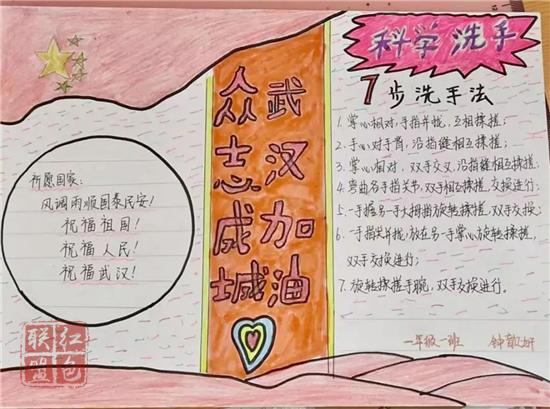 祈愿国家:
风调雨顺国泰民安!
祝福祖国!
祝福人民!
祝福武汉!
武汉加油
众志成城
科学洗手
7步洗手法
1. 掌心相对,手指并拢,互相揉搓;
2. 手心对手背,沿指缝相互揉搓;
3. 掌心相对,双手交叉,沿指缝相互揉搓;
4. 弯曲各手指关节,双手相互揉搓,交换进行;
5. 一手握另一手大拇指旋转揉搓,双手交换;
6. 一手指尖并拢,放在另一手掌心旋转揉搓,
双手交换进行;
7. 旋转揉搓手腕,双手交换进行。
一年级一班 钟
红包联盟